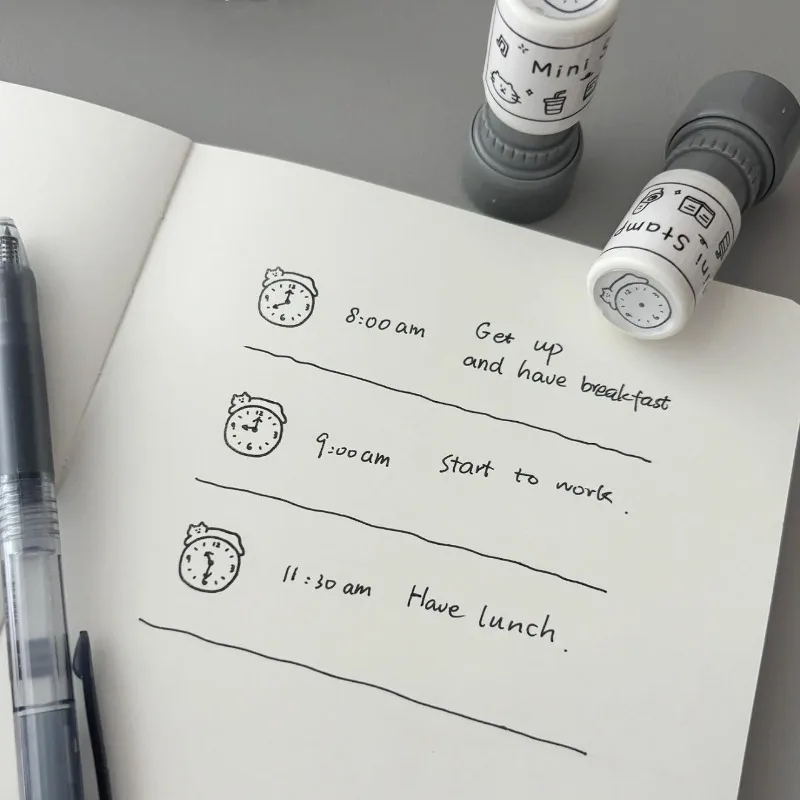 Mini S
Mini Stamp
8:00 am
Get up
and have breakfast
9:00 am
Start to work.
11:30 am
Have lunch.